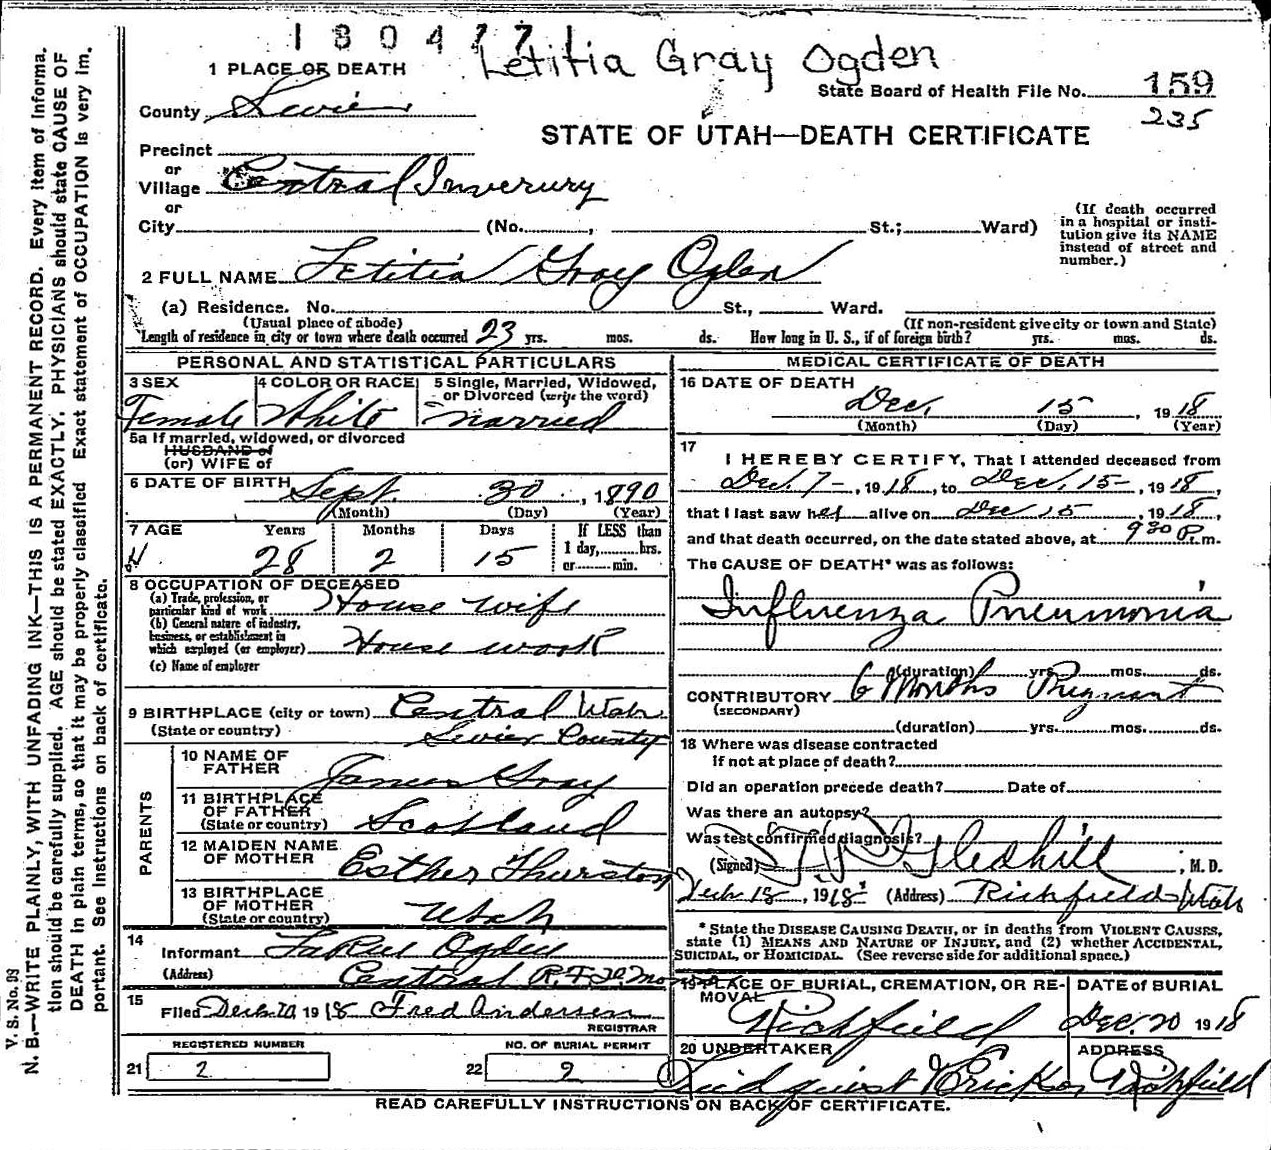 1 8 0 4 7 7 1
Letitia Gray Ogden
1 PLACE OF DEATH
State Board of Health File No. 159
County Sevier
235
STATE OF UTAH—DEATH CERTIFICATE
Precinct
or
Village Central Inverury
or
City (No. , St.; Ward)
(If death occurred in a hospital or insti-
tution give its NAME
instead of street and
number.)
2 FULL NAME Letitia Gray Ogden
(a) Residence. No. St., Ward.
(Usual place of abode) (If non-resident give city or town and State)
Length of residence in city or town where death occurred 23 yrs. mos. ds. How long in U. S., if of foreign birth? yrs. mos. ds.
PERSONAL AND STATISTICAL PARTICULARS
3 SEX 4 COLOR OR RACE 5 Single, Married, Widowed,
or Divorced (write the word)
Female White married
5a If married, widowed, or divorced
HUSBAND of
(or) WIFE of
6 DATE OF BIRTH Sept. 30, 1890
(Month) (Day) (Year)
7 AGE Years Months Days If LESS than
28 2 15 1 day, hrs.
or min.
8 OCCUPATION OF DECEASED
(a) Trade, profession, or
particular kind of work House wife
(b) General nature of industry,
business, or establishment in
which employed (or employer) House work
(c) Name of employer
9 BIRTHPLACE (city or town) Central Utah
(State or country) Sevier County
PARENTS
10 NAME OF
FATHER James Gray
11 BIRTHPLACE
OF FATHER
(State or country) Scotland
12 MAIDEN NAME
OF MOTHER Esther Thurston
13 BIRTHPLACE
OF MOTHER
(State or country) Utah
14
Informant Ogden
(Address) Central R.F.D.
15
Filed Dec 20 1918 Fred Andersen
REGISTRAR
REGISTERED NUMBER NO. OF BURIAL PERMIT
21 2 22 9
MEDICAL CERTIFICATE OF DEATH
16 DATE OF DEATH
Dec. 15, 1918
(Month) (Day) (Year)
17
I HEREBY CERTIFY, That I attended deceased from
Dec. 7-, 1918, to Dec. 15-, 1918,
that I last saw her alive on Dec 15, 1918,
and that death occurred, on the date stated above, at 930 P.m.
The CAUSE OF DEATH* was as follows:
Influenza Pneumonia
(duration) yrs. mos. ds.
CONTRIBUTORY 6 Months Pregnant
(SECONDARY)
(duration) yrs. mos. ds.
18 Where was disease contracted
If not at place of death?
Did an operation precede death? Date of
Was there an autopsy?
Was test confirmed diagnosis?
(Signed) Gledhill, M. D.
Dec 18, 1918 (Address) Richfield Utah
* State the DISEASE CAUSING DEATH, or in deaths from VIOLENT CAUSES,
state (1) MEANS AND NATURE OF INJURY, and (2) whether ACCIDENTAL,
SUICIDAL, or HOMICIDAL. (See reverse side for additional space.)
19 PLACE OF BURIAL, CREMATION, OR RE-
MOVAL
DATE of BURIAL
Richfield Dec. 20 1918
20 UNDERTAKER ADDRESS
Lindquist & Erickson Richfield
READ CAREFULLY INSTRUCTIONS ON BACK OF CERTIFICATE.
V. S. No. D9
N. B.—WRITE PLAINLY, WITH UNFADING INK—THIS IS A PERMANENT RECORD. Every item of informa-
tion should be carefully supplied. AGE should be stated EXACTLY. PHYSICIANS should state CAUSE OF
DEATH in plain terms, so that it may be properly classified. Exact statement of OCCUPATION is very im-
portant. See instructions on back of certificate.